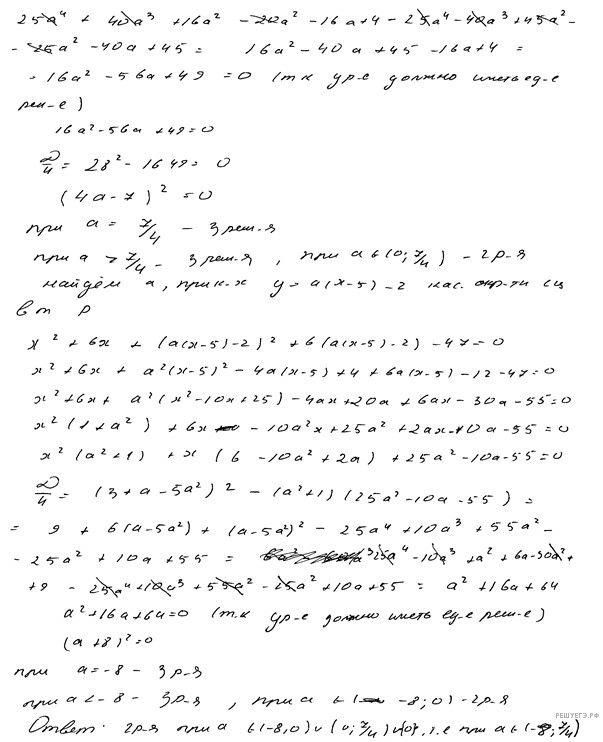 25a⁴ + 40a³ + 16a² - 20a² - 16a + 4 - 25a⁴ - 40a³ + 45a² -
- 25a² - 40a + 45 = 16a² - 40a + 45 - 16a + 4 =
= 16a² - 56a + 49 = 0 (т.к ур-е должно иметь ед-е
реш-е)
16a² - 56a + 49 = 0
D/4 = 28² - 16·49 = 0
(4a - 7)² = 0
при a = 7/4 - 3 реш-я
при a > 7/4 - 3 реш-я, при a ∈ (0; 7/4) - 2 р-я
найдём a, при к-х y = a(x-5) - 2 кас. окр-ти с ц
в т P
x² + 6x + (a(x-5) - 2)² + 6(a(x-5) - 2) - 47 = 0
x² + 6x + a²(x-5)² - 4a(x-5) + 4 + 6a(x-5) - 12 - 47 = 0
x² + 6x + a²(x² - 10x + 25) - 4ax + 20a + 6ax - 30a - 55 = 0
x²(1 + a²) + 6x - 10a²x + 25a² + 2ax - 10a - 55 = 0
x²(a² + 1) + x(6 - 10a² + 2a) + 25a² - 10a - 55 = 0
D/4 = (3 + a - 5a²)² - (a² + 1)(25a² - 10a - 55) =
= 9 + 6(a - 5a²) + (a - 5a²)² - 25a⁴ + 10a³ + 55a² -
- 25a² + 10a + 55 = 25a⁴ - 10a³ + a² + 6a - 30a² +
+ 9 - 25a⁴ + 10a³ + 55a² - 25a² + 10a + 55 = a² + 16a + 64
a² + 16a + 64 = 0 (т.к ур-е должно иметь ед-е реш-е)
(a + 8)² = 0
при a = -8 - 3 р-я
при a < -8 - 3 р-я, при a ∈ (-8; 0) - 2 р-я
Ответ: 2 р-я при a ∈ (-8; 0) ∪ (0; 7/4) ∪ {0}, т.е при a ∈ (-8; 7/4)
РЕШУЕГЭ.РФ